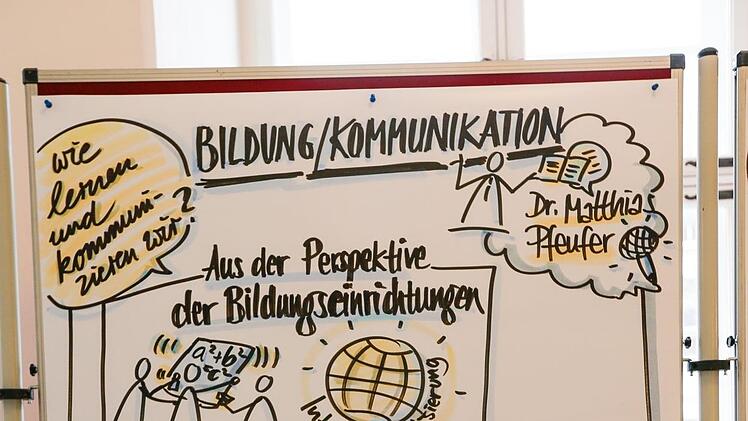 BILDUNG/KOMMUNIKATION
wie
lernen
und
kommuni-
zieren wir?
Dr. Matthias
Pfeufer
Aus der Perspektive
der Bildungseinrichtungen
a²+b²